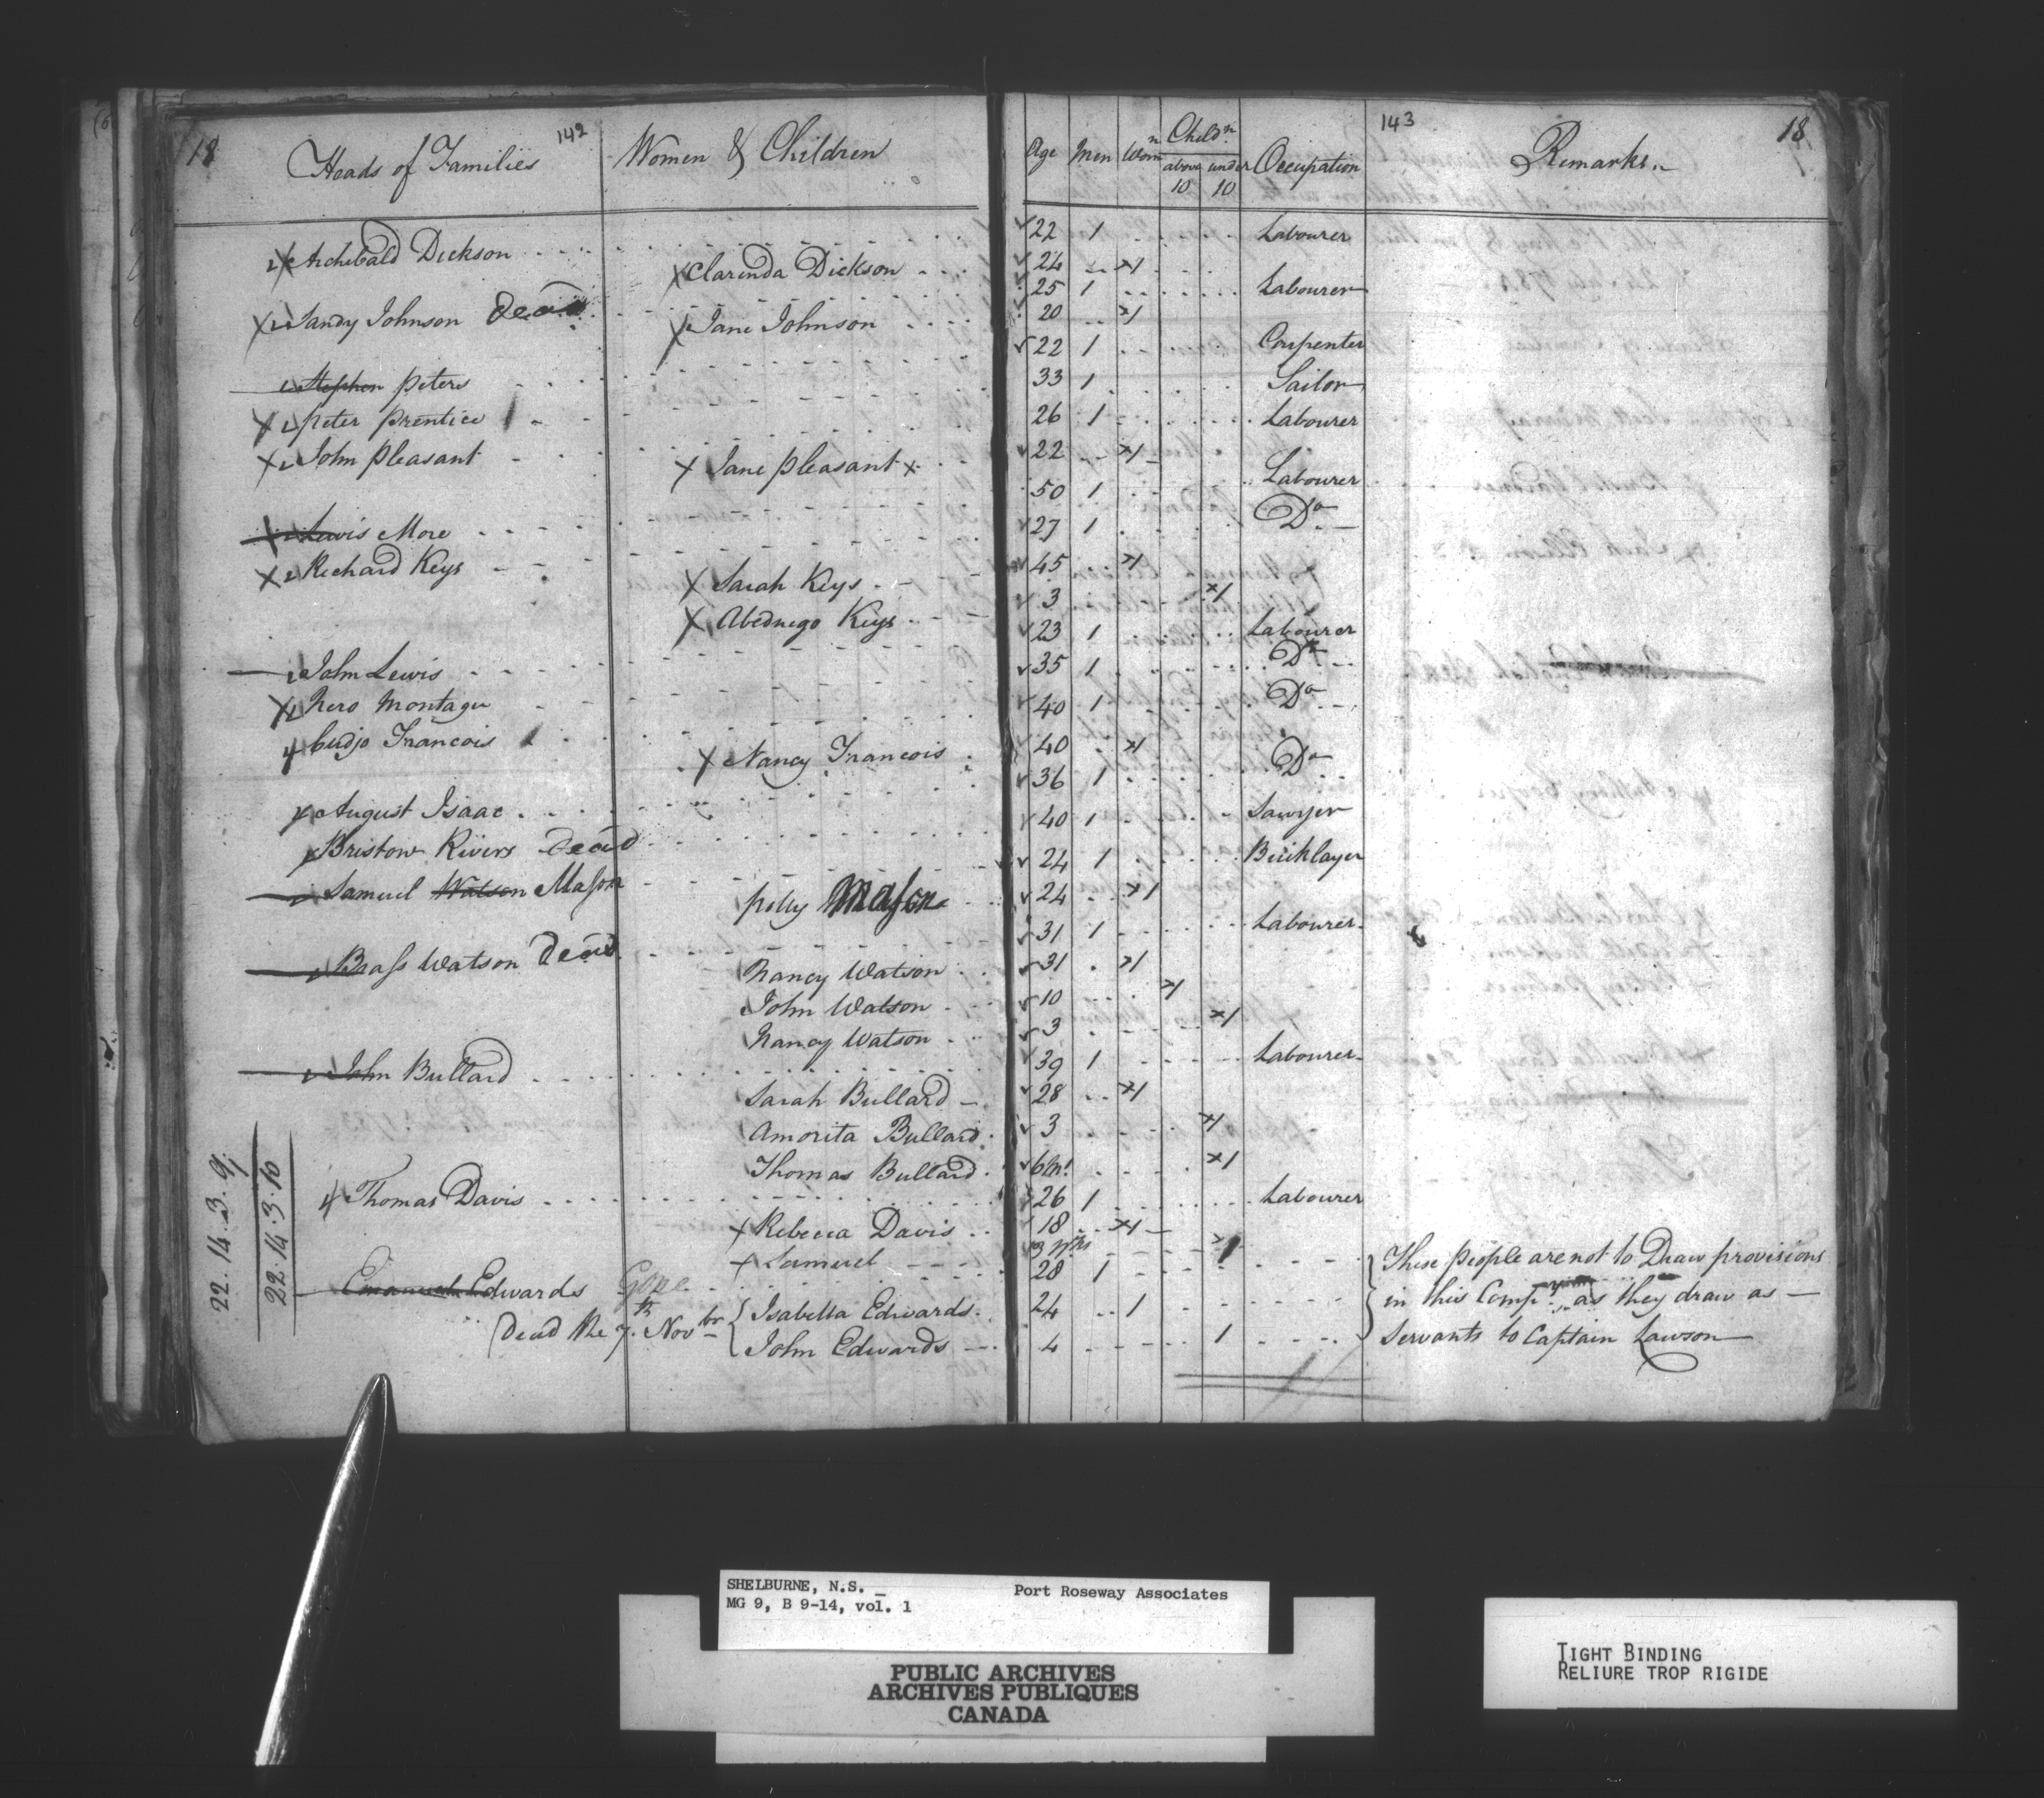 18 142 143 18
Heads of Families Women & Children Age Men Wom.n Child.n above 10 under 10 Occupation Remarks
Archibald Dickson 22 1 Labourer
Clarinda Dickson 24 1
Sandy Johnson Dead 25 1 Labourer
Jane Johnson 20 1
Stephen Peters 22 1 Carpenter
Peter Prentice 33 1 Sailor
John Pleasant 26 1 Labourer
Jane Pleasant x 22 1
Lewis More 50 1 Labourer
Richard Keys 27 1 Do
Sarah Keys 45 1
Abednego Keys 3 1
John Lewis 23 1 Labourer
Nero Montagu 35 1 Do
Cudjo Francois 40 1 Do
Nancy Francois 40 1
August Isaac 36 1 Do
Bristow Rivers Dead 40 1 Sawyer
Samuel Watson Mason 24 1 Bricklayer
Polly Mason 24 1
Brass Watson Dead 31 1 Labourer
Nancy Watson 31 1
John Watson 10 1
Nancy Watson 3 1
John Bullard 39 1 Labourer
Sarah Bullard 28 1
Amorita Bullard 3 1
Thomas Bullard 6 M. 1
Thomas Davis 26 1 Labourer
Rebecca Davis 18 1
Samuel 3 Wks 1
Emanuel Edwards Gone 28 1
Isabella Edwards 24 1
Dead the 7th Novbr John Edwards 4 1
These people are not to Draw provisions
in this Compy as they draw as
Servants to Captain Lawson
22.14.3.9
22.14.3.10
SHELBURNE, N.S. Port Roseway Associates
MG 9, B 9-14, vol. 1
PUBLIC ARCHIVES
ARCHIVES PUBLIQUES
CANADA
TIGHT BINDING
RELIURE TROP RIGIDE